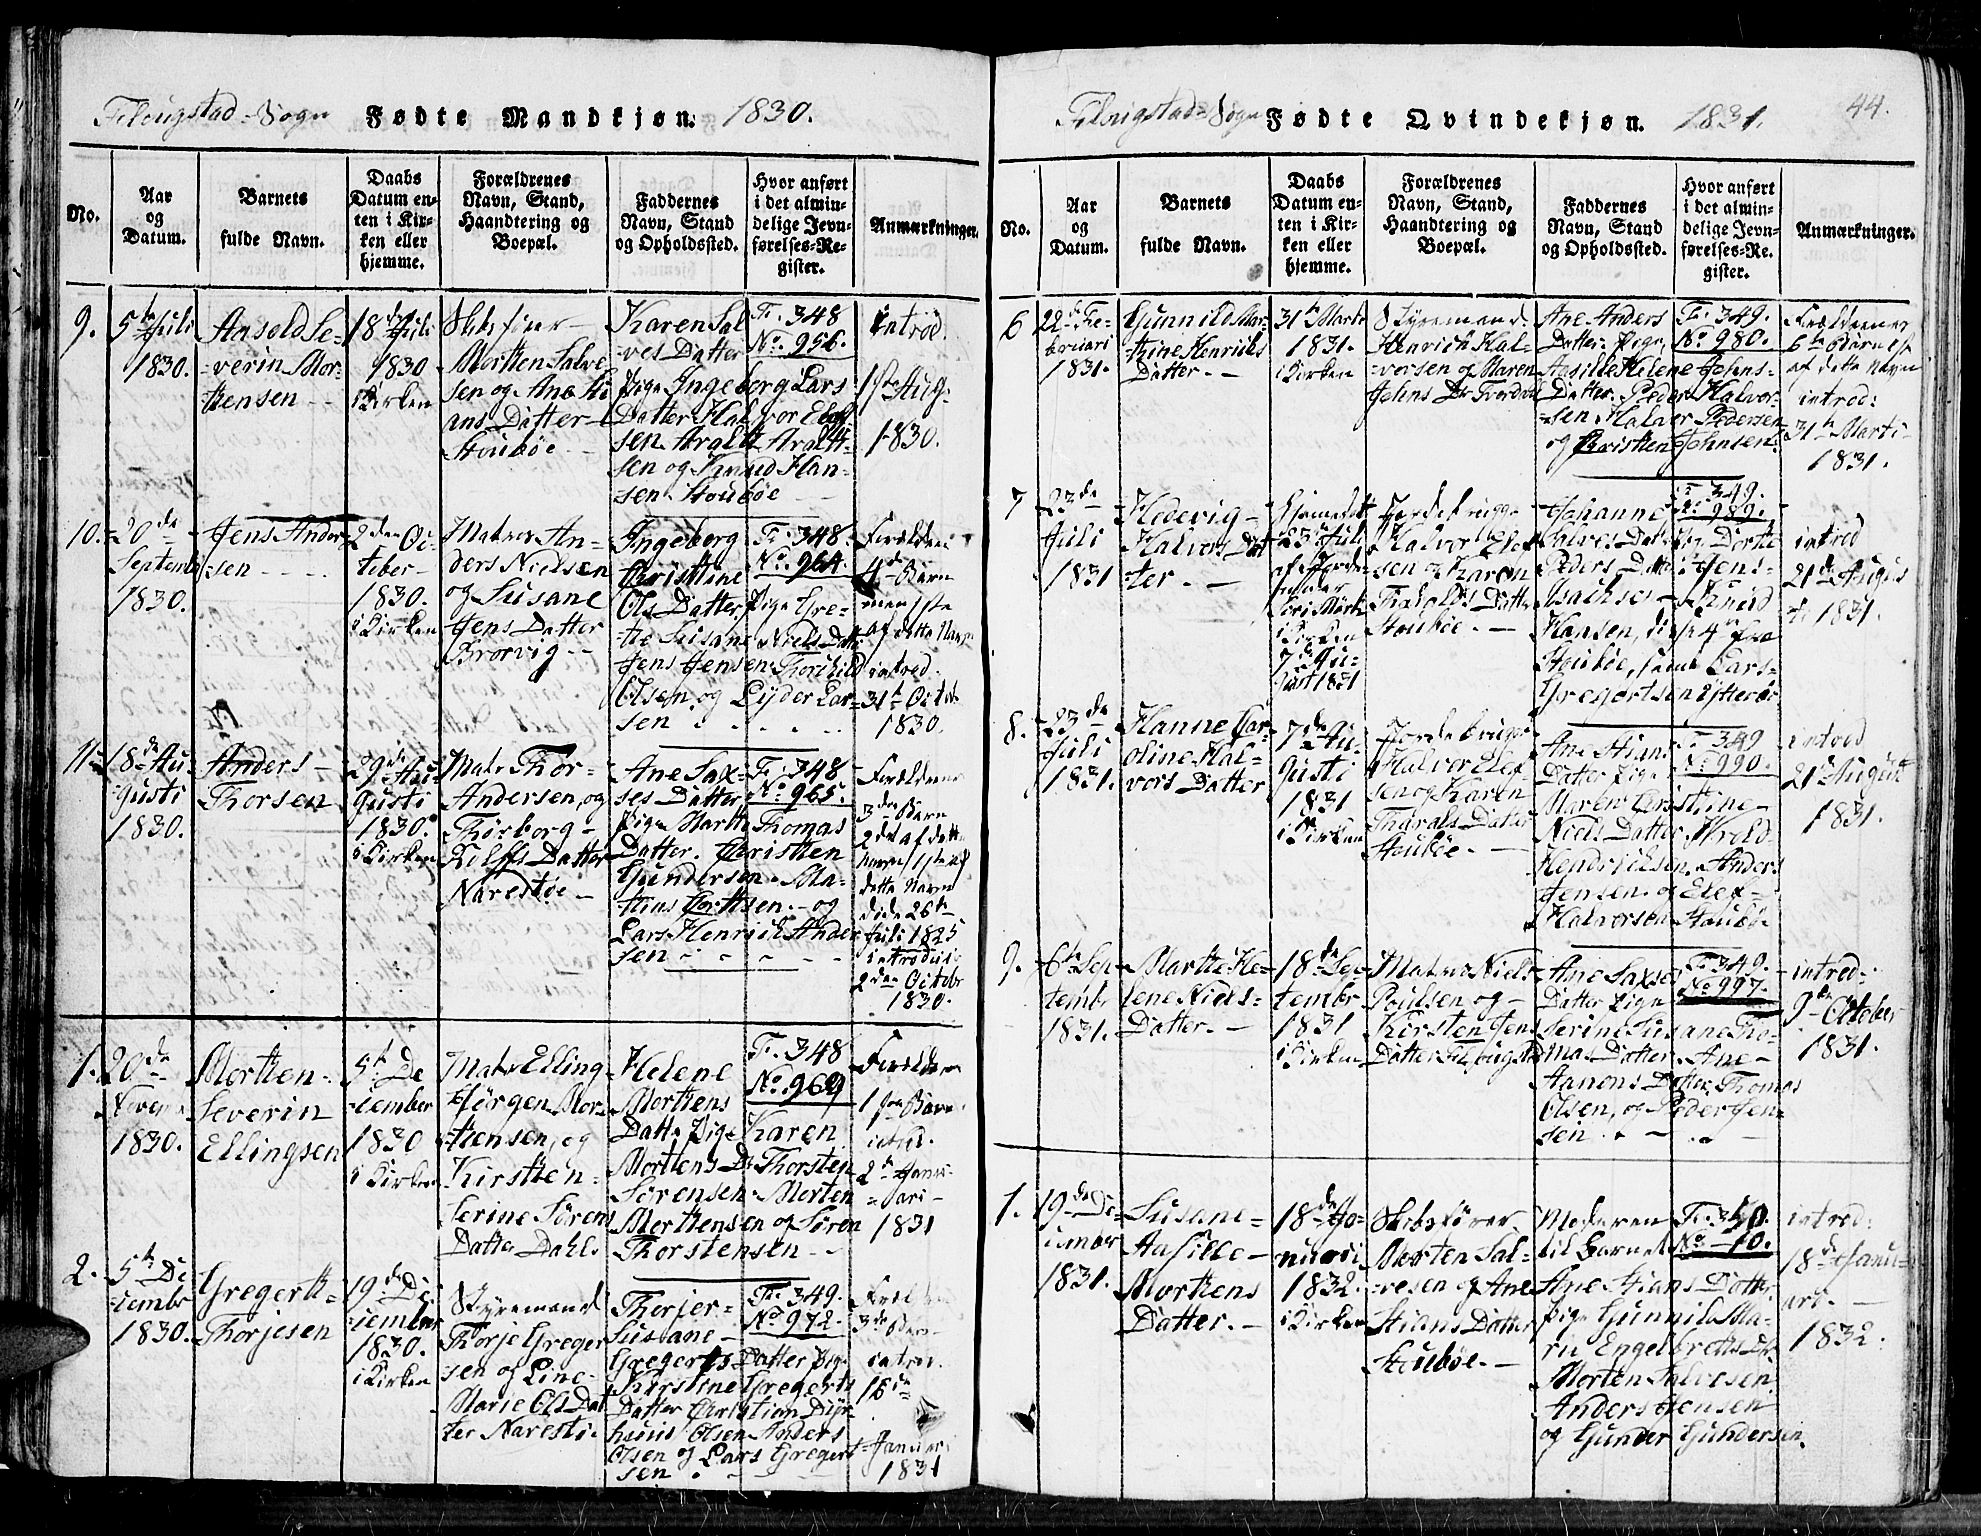 Fladugstad-Sogn Fødte Mandkjøn. 1830.
No.
Aar
og
Datum.
Barnets
fulde Navn.
Daabs
Datum en-
ten i Kir-
ken eller
hjemme.
Forældrenes
Navn, Stand,
Haandtering og
Boepæl.
Faddernes
Navn, Stand
og Opholdssted.
Hvor anført
i det almin-
delige Jevn-
førelses-Re-
gister.
Anmærkninger.
9.
5te Juli
1830.
Aasold Se-
verin Mor-
tensen
18de Juli
1830
i Kirken
Skibsfører
Mortten Salve
sen og Ane Sti
ans Datter
Stoubøe
Karen Sal
ves Datter
Pige Ingeborg Lars
Datter Halvor Elef
sen Aralt Aralt
sen og Knud Han-
sen Stoubøe
F. 348
No. 956.
introd.
1ste Aug.
1830.
10.
20de
Septemb
1830.
Jens Ander
sen
2den Oc-
tober
1830.
i Kirken
Matros An-
ders Nielsen
og Susane
Jens Datter
Brovig
Ingeborg
Christine
Ols Datter, Pige Gre-
the Susane Niels Datter
Jens Jensen Thorkild
Olsen, og Eyder Lar-
sen
F. 348
No. 964.
Forældrene
4de Barn
men 1ste
af dette Navn
introd.
31te Octob
1830.
11
18de Au-
gusti
1830.
Anders
Thorsen
29de Au
gusti
1830.
i Kirken
Matr Thor
Andersen, og
Thorborg
Rolffs Datter
Narestøe
Ane Sax-
ses Datter
Pige Marth Thomas
Datter. Christen
Gundersen. Ma-
thias og
Lars Henrich Ander
sen
F. 348
No. 965.
Forældrene
3de Barn
2det af dette
Navn 1ste af
dette Navn
døde 26te
Juli 1825
introduc
2den Octobr
1830.
1.
20de
Novem
1830.
Mortten
Severin
Ellingsen
5te De
cember
1830
i Kirken
Matr Elling
Jørgen Mor-
tensen, og
Kirsten
Serine Sørens
Datter Dahl.
Helene
Morttens
Datter Pige Karen
Morttens Dr Thorsten
Sørensen Morten
Morttensen og Søren
Thorstensen
F. 348
No. 969
Forældrenes
1ste Barn
introd.
2de Janu-
ari
1831
2.
5te De
cembr
1830.
Gregertt
Thorjesen
19de De
cember
1830.
i Kirken
Styremand
Thorje Greger
sen og Line
Marie Ols Dat
ter Narestø
Thorjer
Susane
Gregerts Datter Pige
Kirstine Gregerts
Datter Christian Dyr-
huus Olsen Anders
Olsen og Lars Gregert
sen
F. 349.
No. 972.
3de Barn
introd.
16de
Januar
1831

Fladugstad-Sogn Fødte Qvindekjøn. 1831. 44.
No.
Aar
og
Datum.
Barnets
fulde Navn.
Daabs
Datum en-
ten i Kir-
ken eller
hjemme.
Forældrenes
Navn, Stand,
Haandtering og
Boepæl.
Faddernes
Navn, Stand
og Opholdssted.
Hvor anført
i det almin-
delige Jevn-
førelses-Re-
gister.
Anmærkninger.
6
22de Fe-
bruari
1831.
Gunnild Mar-
thine Henrichs
Datter.
31te Marti
1831.
i Kirken
Styremand
Henrich Hal-
vorsen og Maren
Johns Dr
Ane Anders
Datter Pige
Aasille Helene Johns-
Datter. Peder Halvor-
sen Halvor Pedersen
og Christen Johnsen.
F. 349.
No 980.
Forældrenes
6te Barn 1ste
af dette Navn
introd:
31te Marti
1831.
7
23de
Juli
1831
Hedevig
Halvors Dat
ter.
hjemmedøbt
23de Juli
af Jorde-
moder
i Kirken
7de Au-
gust 1831
Jordebruger
Halvor Elef
sen og Karen
Tharalds Datter
Stoubøe.
Johanne
Salves Datter Pige Dorthe
Peders Datter Jens
Isachsen Knud
Hansen, disse 4 fra
Stoubøe, samt Lars
Gregertsen Ytterbø
F. 349.
No. 989.
introd
21de Augus
ti 1831.
8.
23de
Juli
1831.
Hanne Car
oline Hal-
vors Datter
7de Au-
gusti
1831
i Kirken
Jordebruger
Halvor Elef
sen og Karen
Tharals Datter
Stoubøe.
Ane Stians
Datter Pige
Maren Christine
Niels Datter. Arold
Hendrichsen. Anders
Jensen. og Elef
Halvorsen Stoubø.
F 349
No 990.
introd
21de August
1831.
9.
6te Sep
tembr
1831.
Marthe He-
lene Niels-
Datter.
18de Sep
tembr
1831
i Kirken
Matros Niels
Poulsen og
Kirsten Jens
Datter Fladugstad
Ane Saxses
Datter Pige
Serine Susane Tho-
mas Datter. Ane
Aanons Datter. Thomas
Olsen, og Peder Jen-
sen
F. 349.
No 997.
introd.
9de October
1831.
1.
19de De-
cember
1831.
Susane
Aasille
Morttens
Datter.
18de Ja-
nuari
1832.
i Kirken
Skibsfører
Morten Sal-
vesen og Ane
Stians Datter
Stoubøe.
Moderen
til Barnet
Ane Stians Datter
Pige Gunnild Ma-
rie Engelbretts Dr.
Morten Salvesen
Anders Jensen
og Gunder Gundersen.
F. 350.
No 10.
introd:
18de Janu-
ari.
1832.